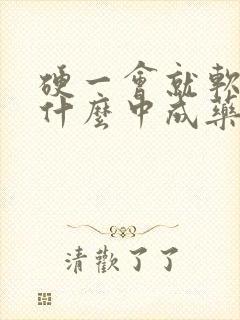 硬一會就軟
什麼中成藥
清歡了了